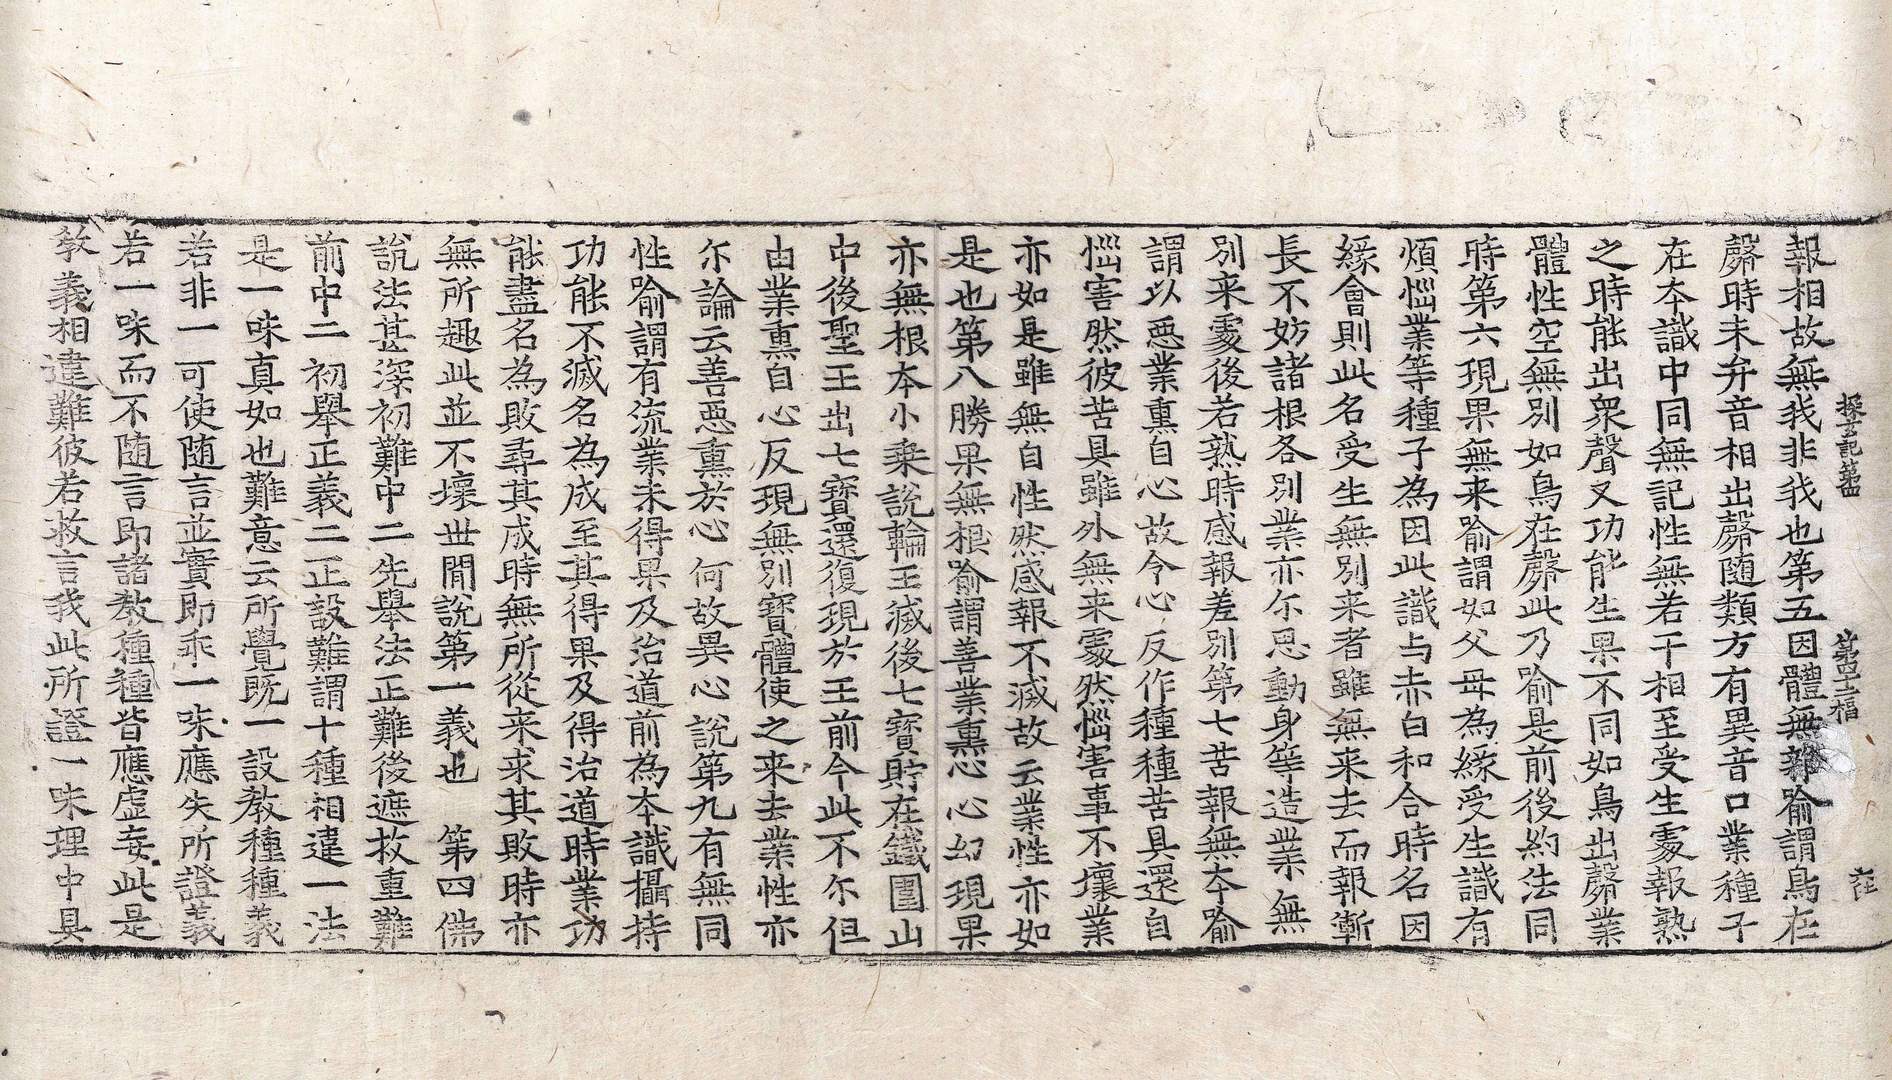 探玄記第四　第四十二福
報相故無我非我也第五因體無雜喻謂鳥在
㲉時未弁音相出㲉随類方有異音口業種子
在本識中同無記性無若干相至受生處報熟
之時能出衆聲又功能生果不同如鳥出㲉業
體性空無別如鳥在㲉此乃喻是前後約法同
時第六現果無来喻謂如父母為緣受生識有
煩惱業等種子為因此識与赤白和合時名因
緣會則此名受生無別来者雖無来去而報漸
長不妨諸根各別業亦尒思動身等造業無
別来處後若熟時感報差別第七苦報無本喻
謂以惡業熏自心故令心反作種種苦具還自
惱害然彼苦具雖外無来處然惱害事不壞業
亦如是雖無自性然感報不滅故云業性亦如
是也第八勝果無根喻謂善業熏心心幻現果
亦無根本小乘說輪王滅後七寶貯在鐵圍山
中後聖王出七寶還復現於王前今此不尒但
由業熏自心反現無別寶體使之来去業性亦
尒論云善惡熏於心何故異心說第九有無同
性喻謂有流業未得果及治道前為本識攝持
功能不滅名為成至其得果及得治道時業功
能盡名為敗尋其成時無所從来求其敗時亦
無所趣此並不壞世間說第一義也　第四佛
說法甚深初難中二先舉法正難後遮救重難
前中二初舉正義二正設難謂十種相違一法
是一味真如也難意云所覺既一設教種種義
若非一可使随言並實即乖一味應失所證義
若一味而不随言即諸教種種皆應虛妄此是
教義相違難彼若救言我此所證一味理中具